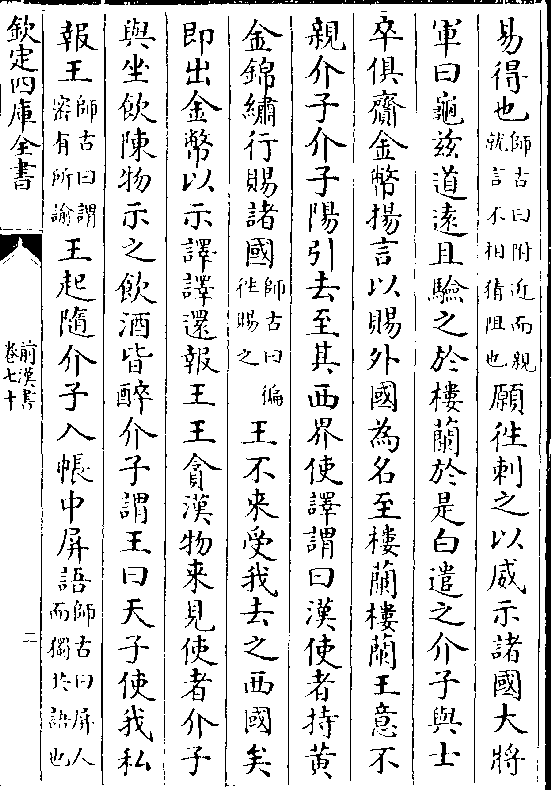 易得也師古曰附近而親就言不相猜阻也願往刺之以威示諸國大將
軍曰龜茲道遠且驗之於樓蘭於是白遣之介子與士
卒俱齎金幣揚言以賜外國為名至樓蘭樓蘭王意不
親介子介子陽引去至其西界使譯謂曰漢使者持黃
金錦繡行賜諸國師古曰徧往賜之王不来受我去之西國矣
即出金幣以示譯譯還報王王貪漢物来見使者介子
與坐飲陳物示之飲酒皆醉介子謂王曰天子使我私
報王師古曰謂密有所諭王起隨介子入帳中屏語師古曰屏人而獨共語也
欽定四庫全書
前漢書
卷七十
二